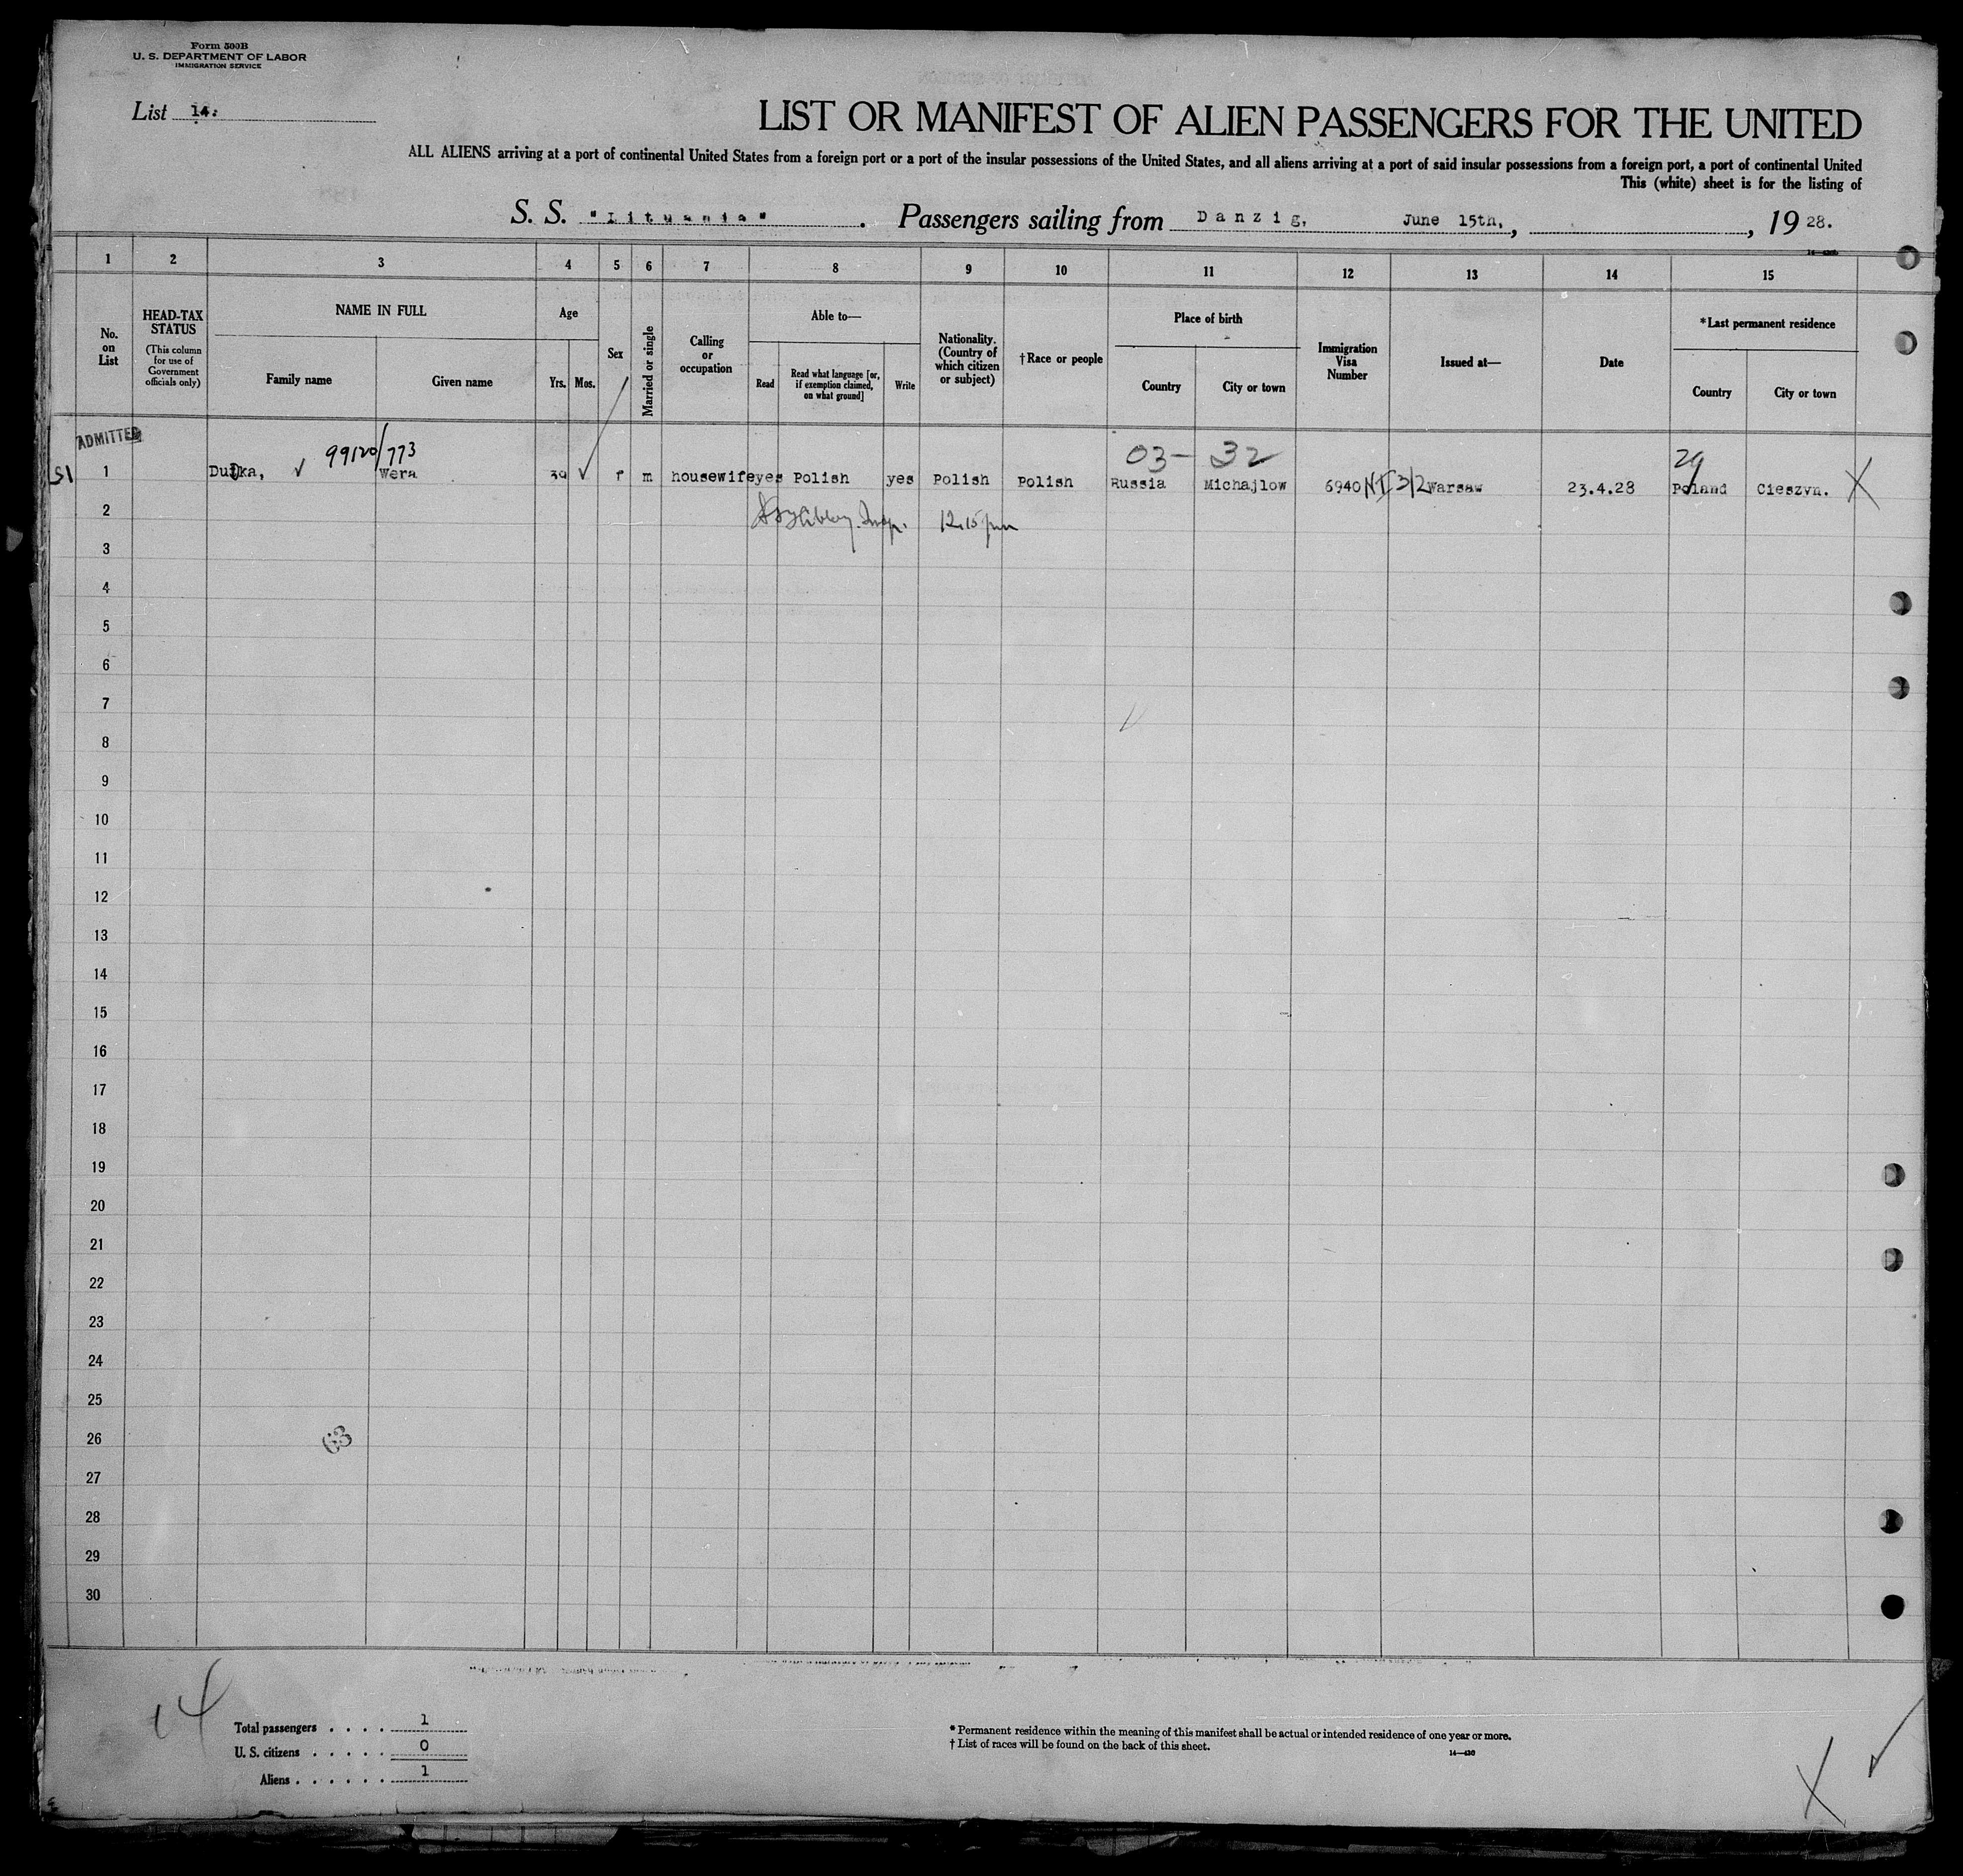 Form 500B
U. S. DEPARTMENT OF LABOR
IMMIGRATION SERVICE
List 14:
LIST OR MANIFEST OF ALIEN PASSENGERS FOR THE UNITED
ALL ALIENS arriving at a port of continental United States from a foreign port or a port of the insular possessions of the United States, and all aliens arriving at a port of said insular possessions from a foreign port, a port of continental United
This (white) sheet is for the listing of
S. S. "Lituania". Passengers sailing from Danzig, June 15th, , 1928.
1 2 3 4 5 6 7 8 9 10 11 12 13 14 15
No. on List
HEAD-TAX STATUS
(This column for use of Government officials only)
NAME IN FULL
Family name
Given name
Age
Yrs. Mos.
Sex
Married or single
Calling or occupation
Able to—
Read
Read what language [or, if exemption claimed, on what ground]
Write
Nationality. (Country of which citizen or subject)
†Race or people
Place of birth
Country
City or town
Immigration Visa Number
Issued at—
Date
*Last permanent residence
Country
City or town
ADMITTED
99120/773 03- 32 29
SI 1 Dudka, Wera 39 f m housewife yes Polish yes Polish Polish Russia Michajlow 6940 Warsaw 23.4.28 Poland Cieszyn. X
2 12.15 pm
3
4
5
6
7
8
9
10
11
12
13
14
15
16
17
18
19
20
21
22
23
24
25
26 63
27
28
29
30
14
Total passengers . . . . 1
U. S. citizens . . . . . 0
Aliens . . . . . . 1
* Permanent residence within the meaning of this manifest shall be actual or intended residence of one year or more.
† List of races will be found on the back of this sheet.
14—430
X